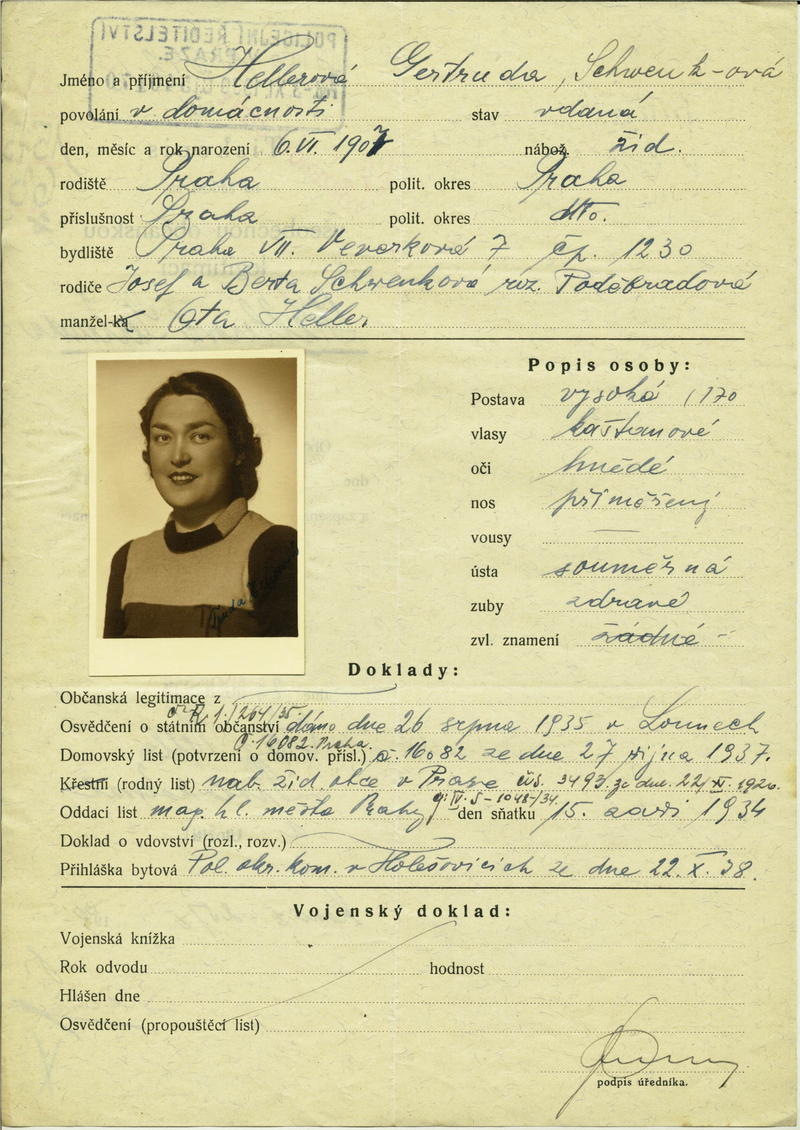 POLICEJNÍ ŘEDITELSTVÍ
PRAZE.
Jméno a příjmení Hellerová Gertruda, Schwenk-ová
povolání v domácnosti stav vdaná
den, měsíc a rok narození 6. VI. 1907 nábož. žid.
rodiště Praha polit. okres Praha
příslušnost Praha polit. okres dtto.
bydliště Praha VII. Veverková 7 čp. 1230
rodiče Josef a Berta Schwenková roz. Poděbradová
manžel-ka Ota Heller
Popis osoby:
Postava vysoká, 170
vlasy kaštanové
oči hnědé
nos přiměřený
vousy —
ústa souměrná
zuby zdravé
zvl. znamení žádné -
Doklady:
Občanská legitimace z
1264/35.
Osvědčení o státním občanství dáno dne 26 srpna 1935 v Lounech
č. 16082. Praha.
Domovský list (potvrzení o domov. přísl.) č. 16082 ze dne 27 října 1937.
Křestní (rodný list) nab. žid. obce v Praze čís. 3493 ze dne 22. XI. 1920.
čj: IV. 5-1048/34.
Oddací list mag. hl. města Prahy den sňatku 15. září 1934
Doklad o vdovství (rozl., rozv.)
Přihláška bytová Pol. okr. kom. v Holešovicích ze dne 22. X. 38.
Vojenský doklad:
Vojenská knížka
Rok odvodu hodnost
Hlášen dne
Osvědčení (propouštěcí list)
podpis úředníka.